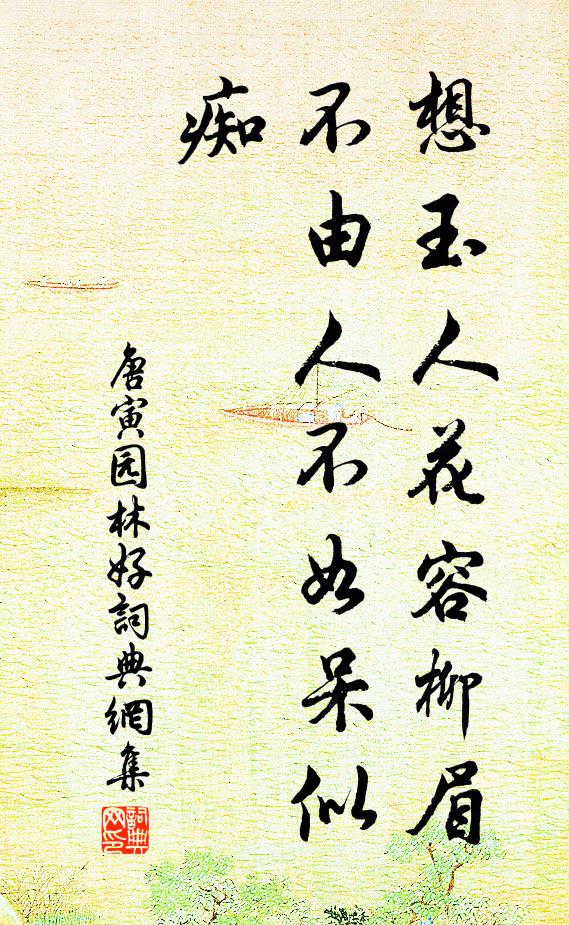 想玉人花容柳眉
不由人不如呆似
痴
唐寅园林好詞典網集
詞典
网印